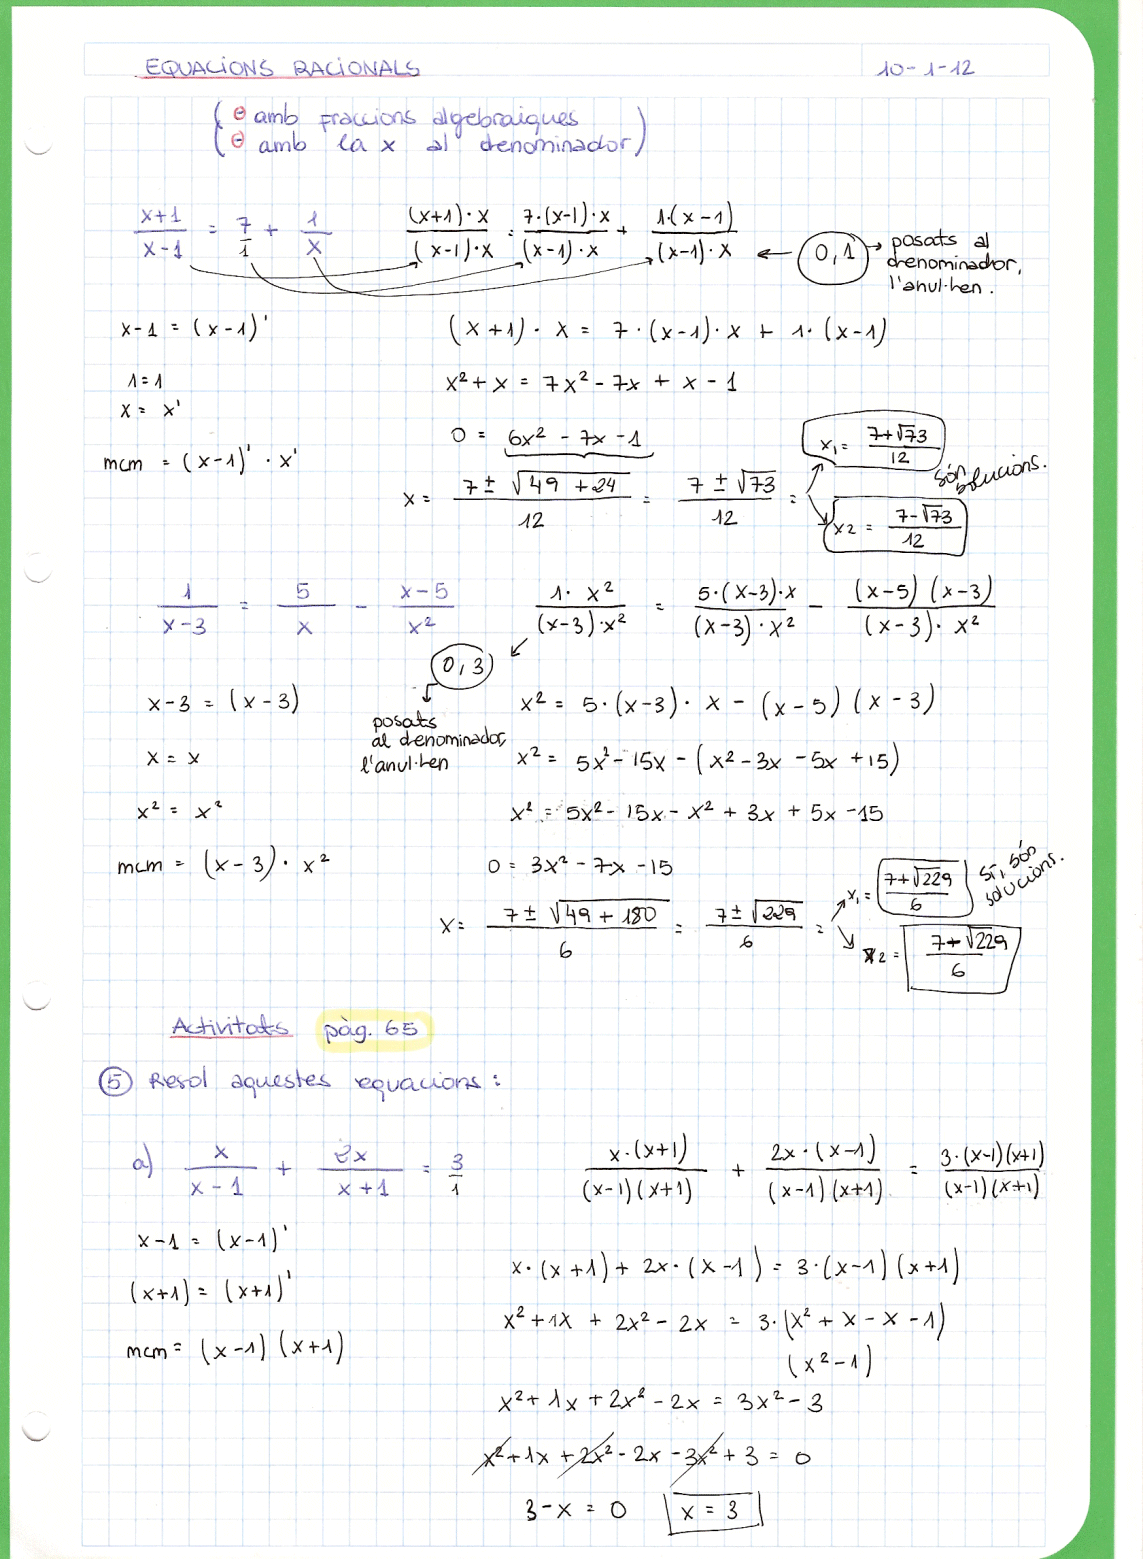 EQUACIONS RACIONALS 10-1-12
(⊖ amb fraccions algebraiques
⊖ amb la x al denominador)
(x+1)/(x-1) = 7/1 + 1/x
((x+1)·x)/((x-1)·x) = (7·(x-1)·x)/((x-1)·x) + (1·(x-1))/((x-1)·x) ← 0,1 → posats al
denominador,
l'anul·len.
x-1 = (x-1)'
(x+1)·x = 7·(x-1)·x + 1·(x-1)
1=1
x² + x = 7x² - 7x + x - 1
x = x'
0 = 6x² - 7x - 1
mcm = (x-1)'·x'
x = (7 ± √(49+24))/12 = (7 ± √73)/12 =
x₁ = (7+√73)/12
x2 = (7-√73)/12
són
solucions.
1/(x-3) = 5/x - (x-5)/x²
(1·x²)/((x-3)·x²) = (5·(x-3)·x)/((x-3)·x²) - ((x-5)(x-3))/((x-3)·x²)
0,3
posats
al denominador,
l'anul·len
x-3 = (x-3)
x² = 5·(x-3)·x - (x-5)(x-3)
x = x
x² = 5x² - 15x - (x² - 3x - 5x + 15)
x² = x²
x² = 5x² - 15x - x² + 3x + 5x - 15
mcm = (x-3)·x²
0 = 3x² - 7x - 15
x = (7 ± √(49+180))/6 = (7 ± √229)/6 =
x₁ = (7+√229)/6
x2 = (7+√229)/6
Sí, són
solucions.
Activitats pàg. 65
⑤ Resol aquestes equacions:
a) x/(x-1) + 2x/(x+1) = 3/1
(x·(x+1))/((x-1)(x+1)) + (2x·(x-1))/((x-1)(x+1)) = (3·(x-1)(x+1))/((x-1)(x+1))
x-1 = (x-1)'
x·(x+1) + 2x·(x-1) = 3·(x-1)(x+1)
(x+1) = (x+1)'
x² + 1x + 2x² - 2x = 3·(x² + x - x - 1)
mcm = (x-1)(x+1)
(x² - 1)
x² + 1x + 2x² - 2x = 3x² - 3
x² + 1x + 2x² - 2x - 3x² + 3 = 0
3 - x = 0 x = 3